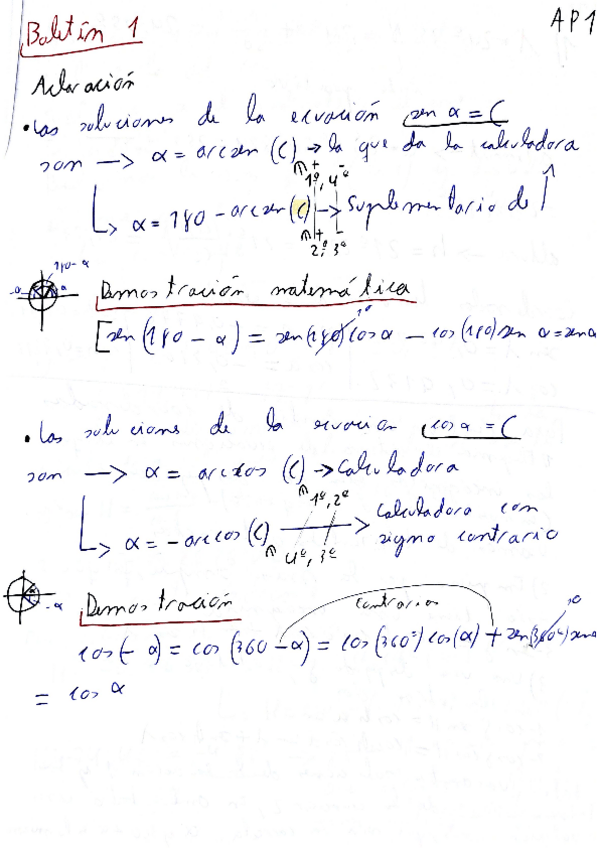 AP1
Boletín 1
Aclaración
• Las soluciones de la ecuación sen α = C
son —> α = arcsen (C) → la que da la calculadora
+ -
1º, 4º
↳ α = 180 - arcsen (C) —> Suplementario de ↑
+ -
2º, 3º
180 - α
-α α
Demostración matemática
[sen (180 - α) = sen(180) cos α - cos (180) sen α = sen α
0
• Las soluciones de la ecuación cos α = C
son —> α = arccos (C) → Calculadora
1º, 2º
↳ α = - arccos (C) —> calculadora con
signo contrario
4º, 3º
α
-α
Demostración
contrarios
cos (- α) = cos (360 - α) = cos (360º) cos(α) + sen(360º) sen α
0
= cos α